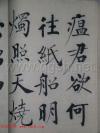 瘟君欲何
往紙船明
燭照天燒